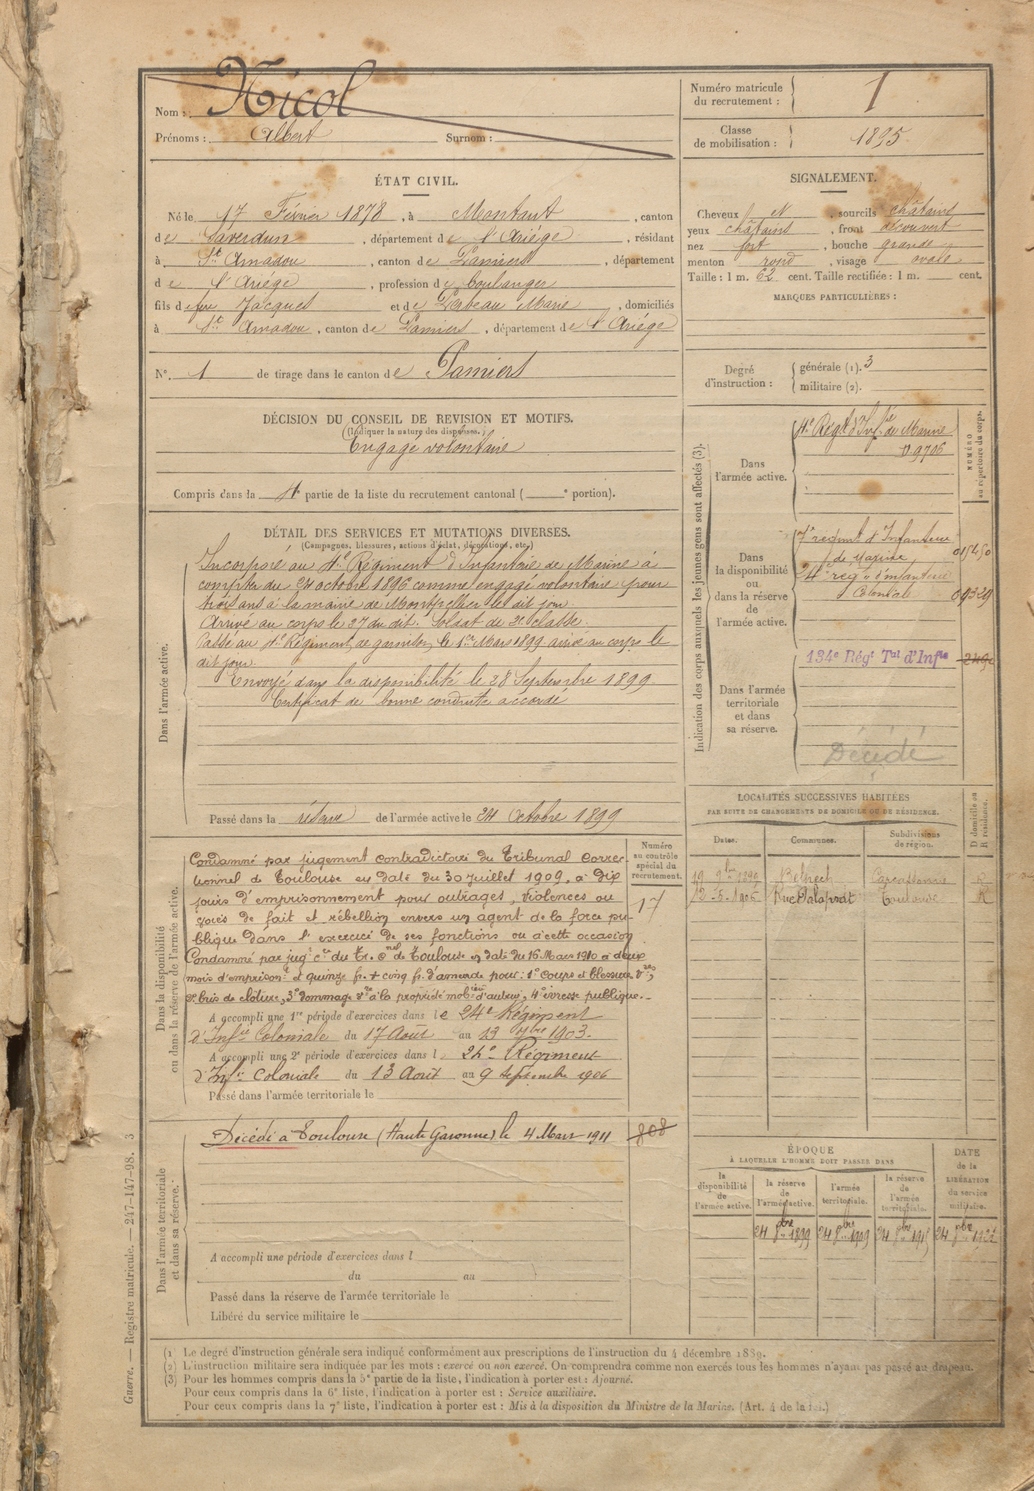 Nom : Nicol
Prénoms : Albert Surnom :
Numéro matricule du recrutement : 1
Classe de mobilisation : 1895
ÉTAT CIVIL.
Né le 17 Février 1878, à Montaut, canton
de Saverdun, département de l'Ariége, résidant
à St Amadou, canton de Pamiers, département
de l'Ariége, profession de boulanger
fils de feu Jacques et de Marie, domiciliés
à St Amadou, canton de Pamiers, département de l'Ariége
N° 1 de tirage dans le canton de Pamiers
SIGNALEMENT.
Cheveux N, sourcils châtains
yeux châtains, front découvert
nez fort, bouche grande
menton rond, visage ovale
Taille : 1 m. 62 cent. Taille rectifiée : 1 m. cent.
MARQUES PARTICULIÈRES :
Degré d'instruction : générale (1). 3
militaire (2).
DÉCISION DU CONSEIL DE REVISION ET MOTIFS.
(Indiquer la nature des dispenses.)
Engagé volontaire
Compris dans la 4e partie de la liste du recrutement cantonal ( e portion).
DÉTAIL DES SERVICES ET MUTATIONS DIVERSES.
(Campagnes, blessures, actions d'éclat, décorations, etc.)
Dans l'armée active.
Incorporé au 4e Régiment d'Infanterie de Marine à
compter du 24 octobre 1896 comme engagé volontaire pour
trois ans à la mairie de Montpellier le dit jour
Arrivé au corps le 27 du dit. Soldat de 2e classe.
Passé au 4e Régiment de garnison, le 1er Mars 1899 arrivé au corps le
dit jour.
Envoyé dans la disponibilité le 28 Septembre 1899
Certificat de bonne conduite accordé
Passé dans la réserve de l'armée active le 24 Octobre 1899
Indication des corps auxquels les jeunes gens sont affectés (3).
NUMÉRO au répertoire du corps.
Dans l'armée active.
4e Régt d'Infrie de Marine
9706
Dans la disponibilité ou dans la réserve de l'armée active.
7e regiment d'Infanterie
de marine 015450
4e reg d'infanterie
Coloniale 09329
Dans l'armée territoriale et dans sa réserve.
134e Régt Tal d'Infie
Décédé
Dans la disponibilité ou dans la réserve de l'armée active.
Numéro au contrôle spécial du recrutement.
17
Condamné par jugement contradictoire du Tribunal correc-
tionnel de Toulouse en date du 30 juillet 1909, à dix
jours d'emprisonnement pour outrages, violences ou
voies de fait et rébellion envers un agent de la force pu-
blique dans l'exercice de ses fonctions ou à cette occasion
Condamné par jugt cre du Tr. cnel de Toulouse en date du 16 Mars 1910 à deux
mois d'emprisont et quinze fr. + cinq fr. d'amende pour : 1° Coups et blessures vres,
2° bris de cloture, 3° dommage vre à la propriété mobière d'autrui, 4° ivresse publique.
A accompli une 1re période d'exercices dans le 24e Régiment
d'Infrie Coloniale du 17 Août au 13 7bre 1903.
A accompli une 2e période d'exercices dans l 24e Régiment
d'Infie Coloniale du 13 Août au 9 Septembre 1906
Passé dans l'armée territoriale le
LOCALITÉS SUCCESSIVES HABITÉES
PAR SUITE DE CHANGEMENTS DE DOMICILE OU DE RÉSIDENCE.
Dates. Communes. Subdivisions de région. D domicile ou R résidence.
19 9bre 1899 Belpech Carcassonne R
1905 Rue Palaprat Toulouse R
Dans l'armée territoriale et dans sa réserve.
Décédé à Toulouse (Haute Garonne) le 4 Mars 1911
808
A accompli une période d'exercices dans l
du au
Passé dans la réserve de l'armée territoriale le
Libéré du service militaire le
ÉPOQUE
À LAQUELLE L'HOMME DOIT PASSER DANS
la disponibilité de l'armée active.
la réserve de l'armée active.
l'armée territoriale.
la réserve de l'armée territoriale.
DATE de la LIBÉRATION du service militaire.
24 8bre 1899 24 8bre 1909 24 8bre 1915 24 8bre 1922
(1) Le degré d'instruction générale sera indiqué conformément aux prescriptions de l'instruction du 4 décembre 1889.
(2) L'instruction militaire sera indiquée par les mots : exercé ou non exercé. On comprendra comme non exercés tous les hommes n'ayant pas passé au drapeau.
(3) Pour les hommes compris dans la 5e partie de la liste, l'indication à porter est : Ajourné.
Pour ceux compris dans la 6e liste, l'indication à porter est : Service auxiliaire.
Pour ceux compris dans la 7e liste, l'indication à porter est : Mis à la disposition du Ministre de la Marine. (Art. 4 de la loi.)
Guerre. — Registre matricule. — 247-147-98. 3